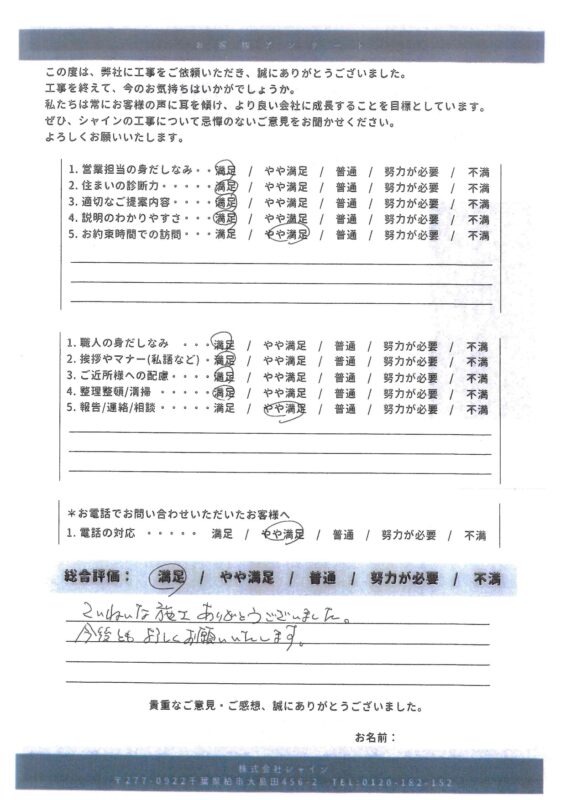 お客様アンケート
この度は、弊社に工事をご依頼いただき、誠にありがとうございました。
工事を終えて、今のお気持ちはいかがでしょうか。
私たちは常にお客様の声に耳を傾け、より良い会社に成長することを目標としています。
ぜひ、シャインの工事について忌憚のないご意見をお聞かせください。
よろしくお願いいたします。
1. 営業担当の身だしなみ・・満足 / やや満足 / 普通 / 努力が必要 / 不満
2. 住まいの診断力・・・・・満足 / やや満足 / 普通 / 努力が必要 / 不満
3. 適切なご提案内容・・・・満足 / やや満足 / 普通 / 努力が必要 / 不満
4. 説明のわかりやすさ・・・満足 / やや満足 / 普通 / 努力が必要 / 不満
5. お約束時間での訪問・・・満足 / やや満足 / 普通 / 努力が必要 / 不満
1. 職人の身だしなみ ・・・満足 / やや満足 / 普通 / 努力が必要 / 不満
2. 挨拶やマナー(私語など)・満足 / やや満足 / 普通 / 努力が必要 / 不満
3. ご近所様への配慮・・・・満足 / やや満足 / 普通 / 努力が必要 / 不満
4. 整理整頓/清掃 ・・・・・満足 / やや満足 / 普通 / 努力が必要 / 不満
5. 報告/連絡/相談・・・・・満足 / やや満足 / 普通 / 努力が必要 / 不満
＊お電話でお問い合わせいただいたお客様へ
1. 電話の対応 ・・・・・ 満足 / やや満足 / 普通 / 努力が必要 / 不満
総合評価： 満足 / やや満足 / 普通 / 努力が必要 / 不満
ていねいな施工ありがとうございました。
今後ともよろしくお願いいたします。
貴重なご意見・ご感想、誠にありがとうございました。
お名前：
株式会社シャイン
〒277-0922千葉県柏市大島田456-2 TEL:0120-182-152